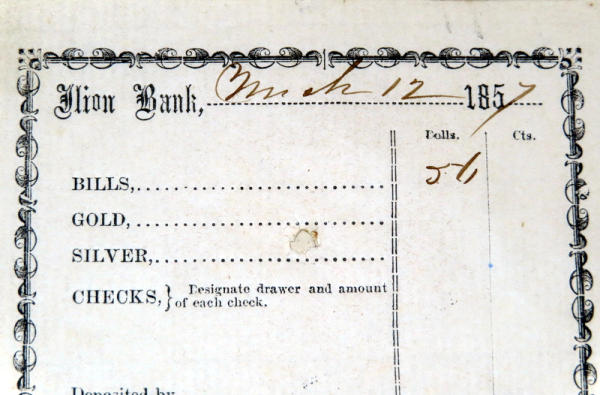 Ilion Bank, March 12 1857
Dolls. Cts.
BILLS, 56
GOLD,
SILVER,
CHECKS, } Designate drawer and amount
of each check.
Deposited by